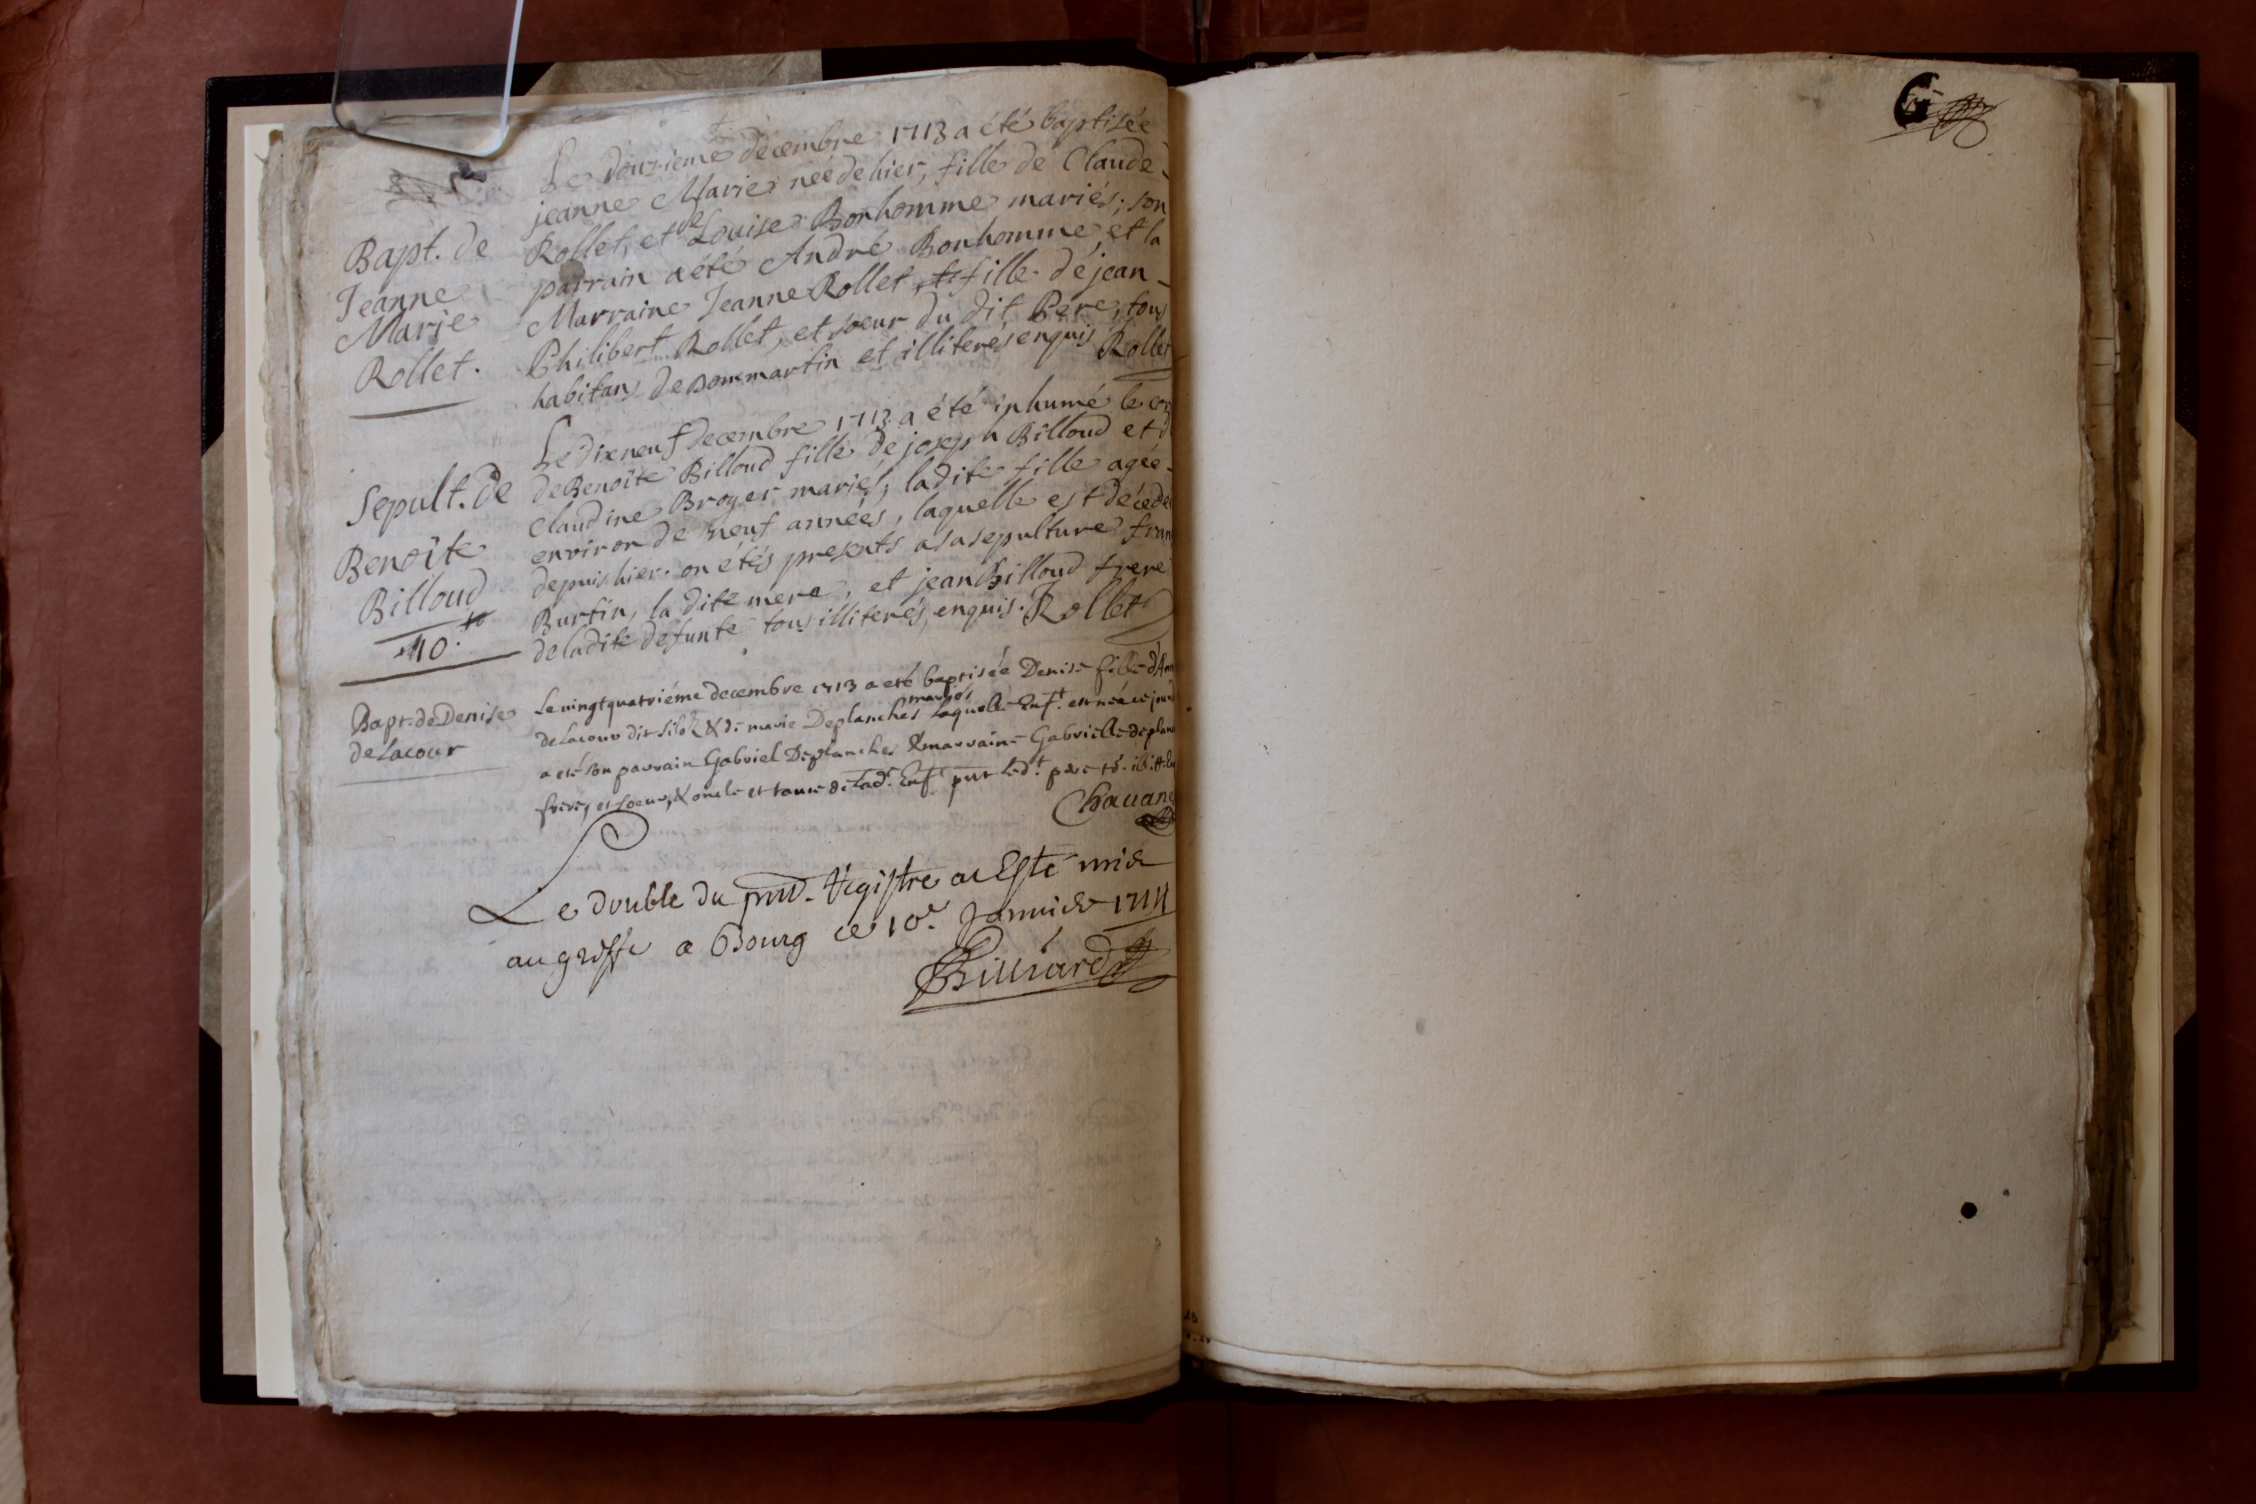 Bapt. de
Jeanne
Marie
Rollet.
Le douzieme decembre 1713 a été baptisée
jeanne Marie née de hier, fille de Claude
Rollet, et de Louise Bonhomme mariés; son
parrain a été André Bonhomme, et la
Marraine Jeanne Rollet fille de jean
Philibert Rollet, et soeur du dit Pere, tous
habitans de Dommartin et illiterés enquis Rollet
Sepult. de
Benoîte
Billoud
10.
Le dixneuf decembre 1713 a été inhumé le cor
de Benoîte Billoud fille de joseph Billoud et d
Claudine Broyer mariés, ladite fille agée
environ de neuf années, laquelle est décedé
depuis hier. on étés presents a sa sepulture fran
Burtin, la dite mere, et jean Billoud frere
de ladite défunte tous illiterés, enquis. Rollet
Bapt. de Denise
de Lacour
Le vingt quatriéme decembre 1713 a eté baptisée Denise fille d'Ant
de Lacour dit & de marie Deplanches mariés laquelle Enf.t est née ce jour
a eté son parrain Gabriel Deplanches & marraine Gabrielle deplan
freres et soeur, & oncle et tante de lad. Enf.t pnt led.t pere
Chavane
Le double du pnt. Registre a Esté mis
au greffe a Bourg ce 10.e Januier 1714
Billiard